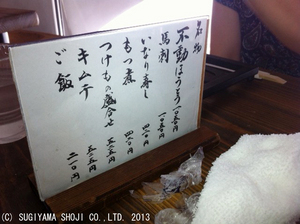 名物
不動ほうとう 一〇五〇円
馬刺 一〇五〇円
いなり寿し 四二〇円
もつ煮 四二〇円
つけもの盛合せ 五二五円
キムチ 五二五円
ご飯 二一〇円
(C) SUGIYAMA SHOJI CO.,LTD. 2013